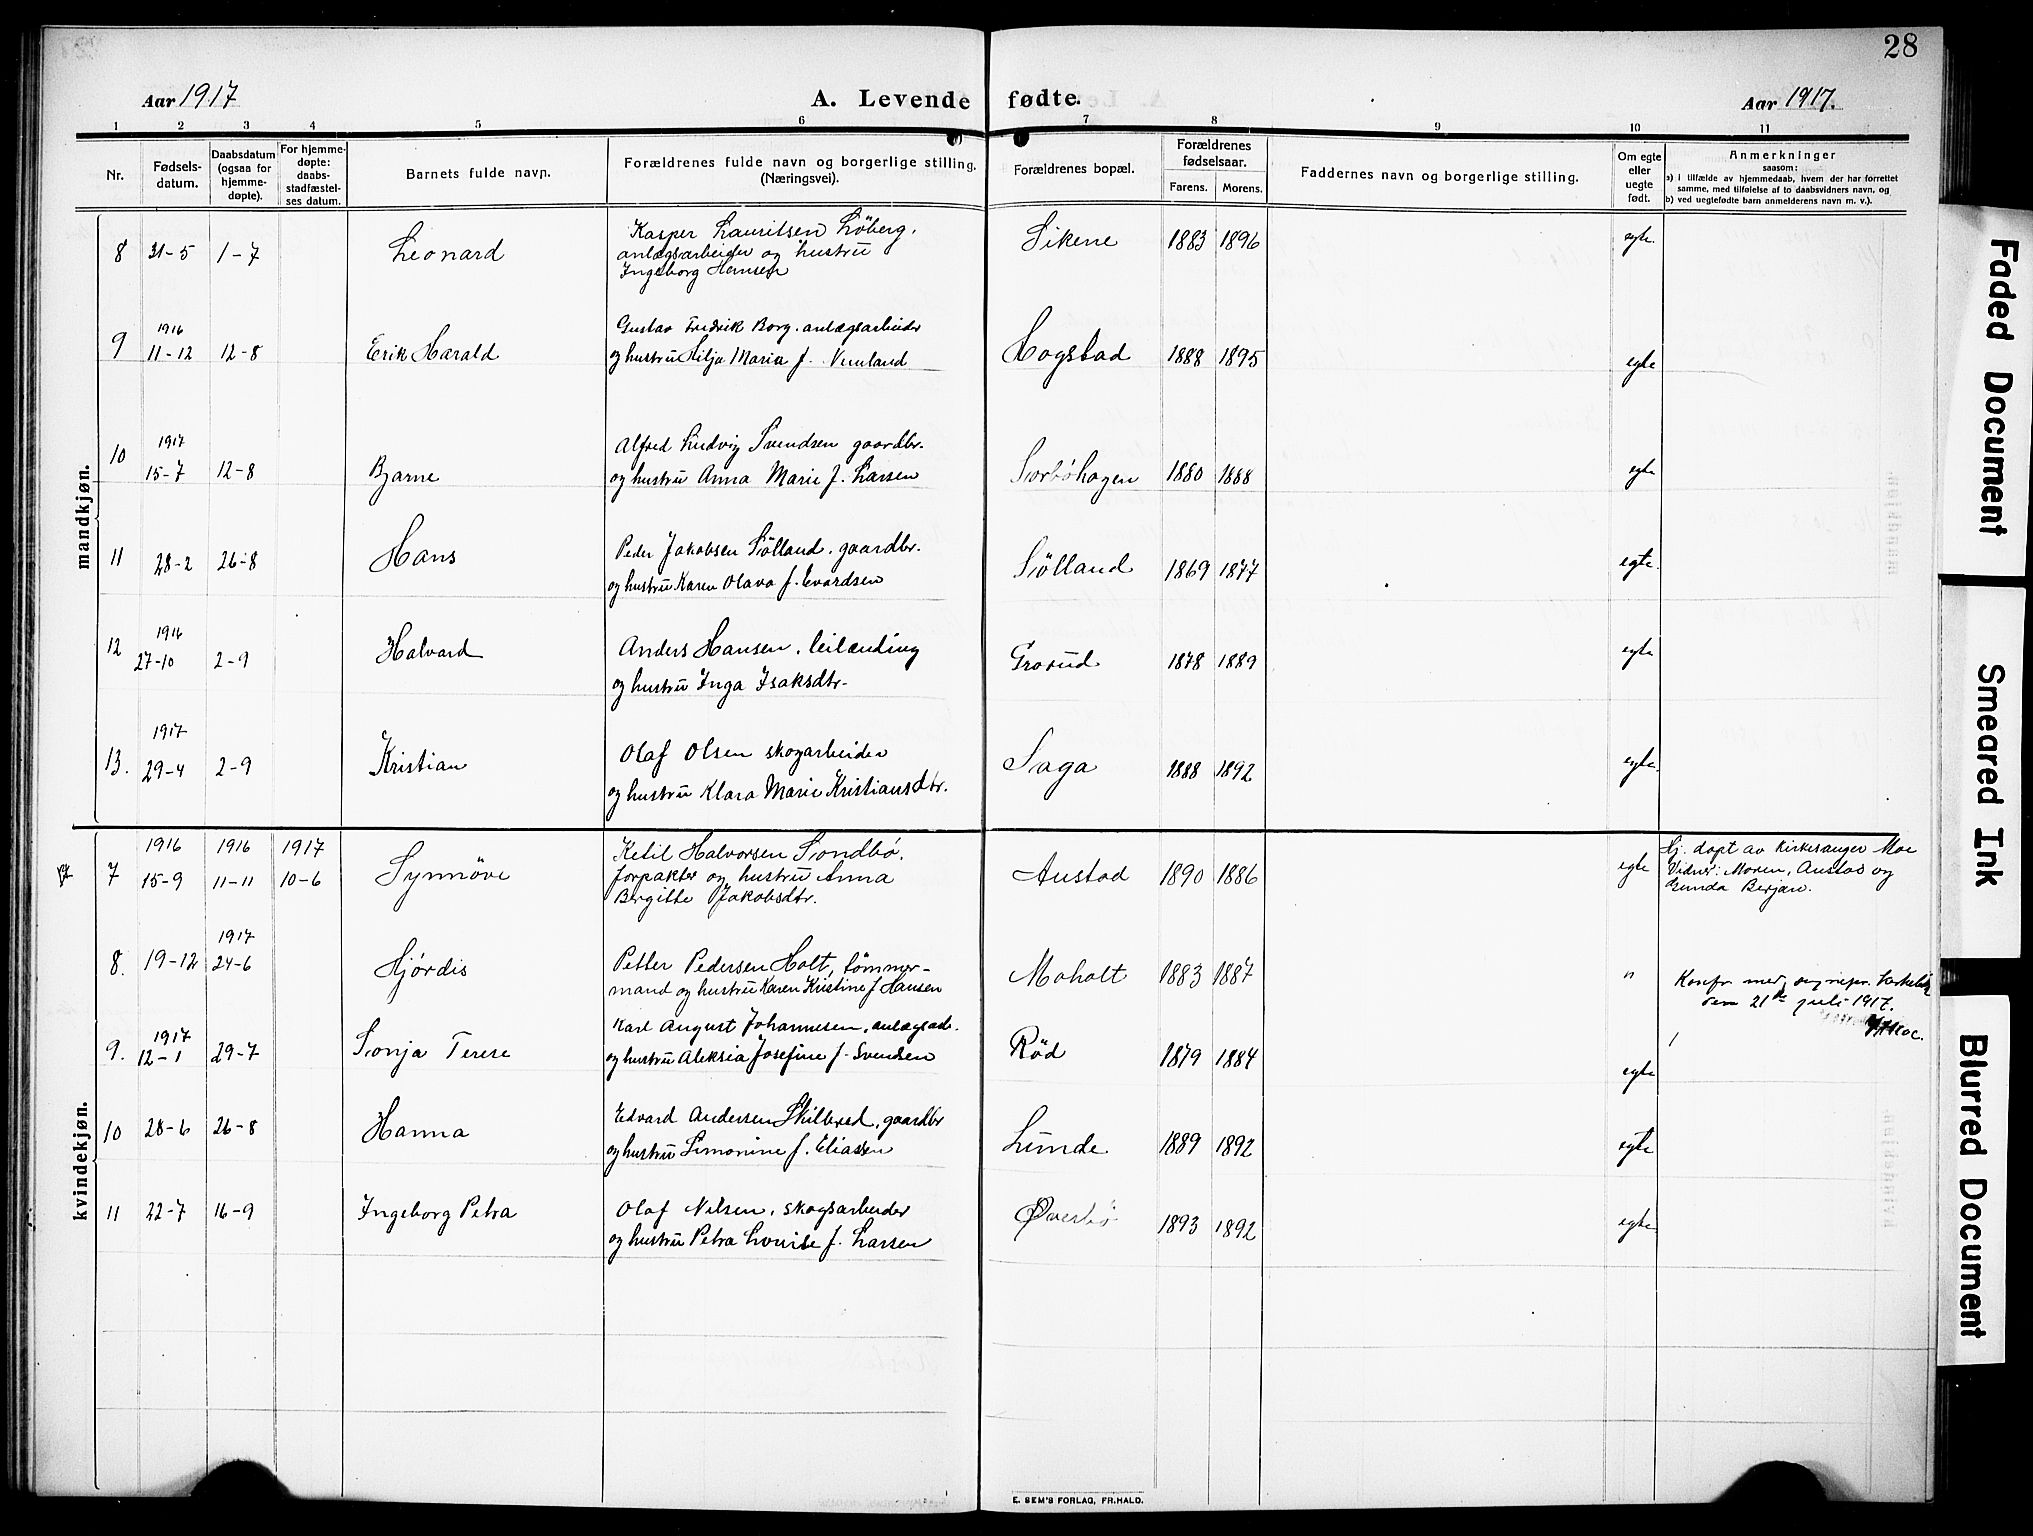 28
Aar 1917
A. Levende fødte.
Aar 1917.
1 2 3 4 5 6 7 8 9 10 11
Nr.
Fødsels-
datum.
Daabsdatum
(ogsaa for
hjemme-
døpte).
For hjemme-
døpte:
daabs-
stadfæstel-
ses datum.
Barnets fulde navn.
Forældrenes fulde navn og borgerlige stilling.
(Næringsvei).
Forældrenes bopæl.
Forældrenes
fødselsaar.
Farens. Morens.
Faddernes navn og borgerlige stilling.
Om egte
eller
uegte
født.
Anmerkninger
saasom:
a) i tilfælde av hjemmedaab, hvem der har forrettet
samme, med tilføielse af to daabsvidners navn, og
b) ved uegtefødte barn anmelderens navn m. v.).
mandkjøn.
8 31-5 1-7 Leonard
Kasper Lauritsen Löberg,
anlægsarbeider og hustru
Ingeborg Hansen
Sikene 1883 1896 egte.
9 1916
11-12 12-8 Erik Harald
Gustav Fredrik Borg. anlægsarbeider
og hustru Hilja Maria f.
Hogstad 1888 1895 egte
10 1917
15-7 12-8 Bjarne
Alfred Ludvig Svendsen gaardbr.
og hustru Anna Marie f. Larsen
Sorbøhagen 1880 1888 egte
11 28-2 26-8 Hans
Peder Jakobsen Sölland. gaardbr.
og hustru Karen Olava f. Evardsen
Sölland 1869 1877 egte.
12 1916
27-10 2-9 Halvard
Anders Hansen, leilænding
og hustru Inga Isaksdtr.
Grorud 1878 1889 egte
13. 1917
29-4 2-9 Kristian
Olaf Olsen skogarbeider
og hustru Klara Marie Kristiansdtr.
Saga 1888 1892 egte.
kvindekjøn.
7 1916 1916 1917
15-9 11-11 10-6 Synnöve
Ketil Halvorsen Sondbö,
forpakter og hustru Anna
Bergitte Jakobsdtr.
Austad 1890 1886 egte
Hj. døpt av kirkesanger Moe
Vidner: Moren, Austad og
Gunda Berjan.
8. 19-12 1917
24-6 Hjördis
Petter Pedersen Holt, tømmer-
mand og hustru Karen Kristine f Hansen
Moholt 1883 1887 "
Konfr. med
den 21de juli 1917.
Moe.
9. 1917
12-1 29-7 Sonja Terese
Karl August Johannesen, anlægsarb.
og hustru Aleksia Josefine f. Svendsen
Röd 1879 1884 egte
10 28-6 26-8 Hanna
Edvard Andersen Skilbred, gaardbr
og hustru Simonine f. Eliassen
Lunde 1889 1892 egte
11 22-7 16-9 Ingeborg Petra
Olaf Nilsen, skogsarbeider
og hustru Petra Lovise f. Larsen
Øvesbö 1893 1892 egte
E. SEM'S FORLAG, FR.HALD.
Faded Document
Smeared Ink
Blurred Document